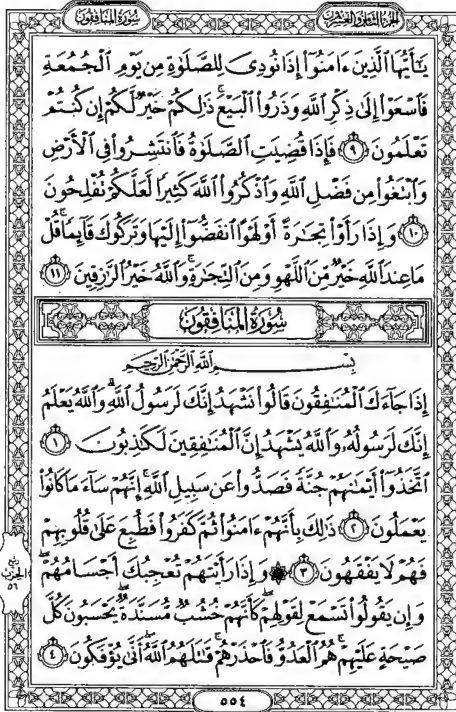 سورة المنافقون
الجزء الثامن والعشرون
يَـٰٓأَيُّهَا ٱلَّذِينَ ءَامَنُوٓا۟ إِذَا نُودِىَ لِلصَّلَوٰةِ مِن يَوْمِ ٱلْجُمُعَةِ
فَٱسْعَوْا۟ إِلَىٰ ذِكْرِ ٱللَّهِ وَذَرُوا۟ ٱلْبَيْعَ ۚ ذَٰلِكُمْ خَيْرٌ لَّكُمْ إِن كُنتُمْ
تَعْلَمُونَ ٩ فَإِذَا قُضِيَتِ ٱلصَّلَوٰةُ فَٱنتَشِرُوا۟ فِى ٱلْأَرْضِ
وَٱبْتَغُوا۟ مِن فَضْلِ ٱللَّهِ وَٱذْكُرُوا۟ ٱللَّهَ كَثِيرًا لَّعَلَّكُمْ تُفْلِحُونَ
١٠ وَإِذَا رَأَوْا۟ تِجَـٰرَةً أَوْ لَهْوًا ٱنفَضُّوٓا۟ إِلَيْهَا وَتَرَكُوكَ قَآئِمًا ۚ قُلْ
مَا عِندَ ٱللَّهِ خَيْرٌ مِّنَ ٱللَّهْوِ وَمِنَ ٱلتِّجَـٰرَةِ ۚ وَٱللَّهُ خَيْرُ ٱلرَّٰزِقِينَ ١١
سُورَةُ المُنَافِقُونَ
بِسْمِ ٱللَّهِ ٱلرَّحْمَـٰنِ ٱلرَّحِيمِ
إِذَا جَآءَكَ ٱلْمُنَـٰفِقُونَ قَالُوا۟ نَشْهَدُ إِنَّكَ لَرَسُولُ ٱللَّهِ ۗ وَٱللَّهُ يَعْلَمُ
إِنَّكَ لَرَسُولُهُۥ وَٱللَّهُ يَشْهَدُ إِنَّ ٱلْمُنَـٰفِقِينَ لَكَـٰذِبُونَ ١
ٱتَّخَذُوٓا۟ أَيْمَـٰنَهُمْ جُنَّةً فَصَدُّوا۟ عَن سَبِيلِ ٱللَّهِ ۚ إِنَّهُمْ سَآءَ مَا كَانُوا۟
يَعْمَلُونَ ٢ ذَٰلِكَ بِأَنَّهُمْ ءَامَنُوا۟ ثُمَّ كَفَرُوا۟ فَطُبِعَ عَلَىٰ قُلُوبِهِمْ
فَهُمْ لَا يَفْقَهُونَ ٣ ۞ وَإِذَا رَأَيْتَهُمْ تُعْجِبُكَ أَجْسَامُهُمْ ۖ
وَإِن يَقُولُوا۟ تَسْمَعْ لِقَوْلِهِمْ ۖ كَأَنَّهُمْ خُشُبٌ مُّسَنَّدَةٌ ۖ يَحْسَبُونَ كُلَّ
صَيْحَةٍ عَلَيْهِمْ ۚ هُمُ ٱلْعَدُوُّ فَٱحْذَرْهُمْ ۚ قَـٰتَلَهُمُ ٱللَّهُ ۖ أَنَّىٰ يُؤْفَكُونَ ٤
الحزب
٥٦
٥٥٤